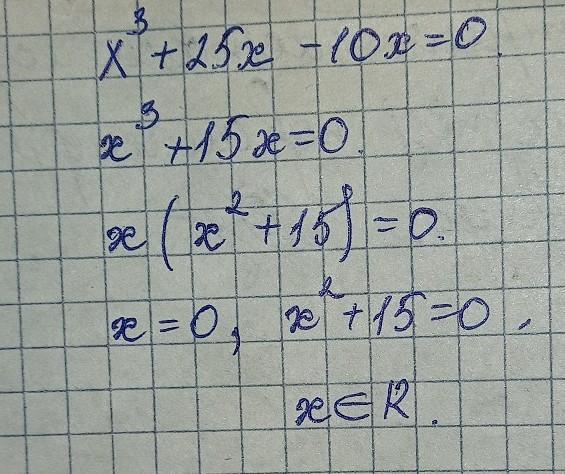 x³ + 25x - 10x = 0.
x³ + 15x = 0.
x (x² + 15) = 0.
x = 0, x² + 15 = 0,
x ∈ R.